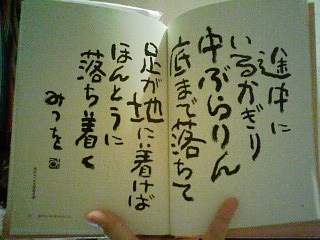 途中に
いるかぎり
中ぶらりん
底まで落ちて
足が地に着けば
ほんとうに
落ち着く
みつを